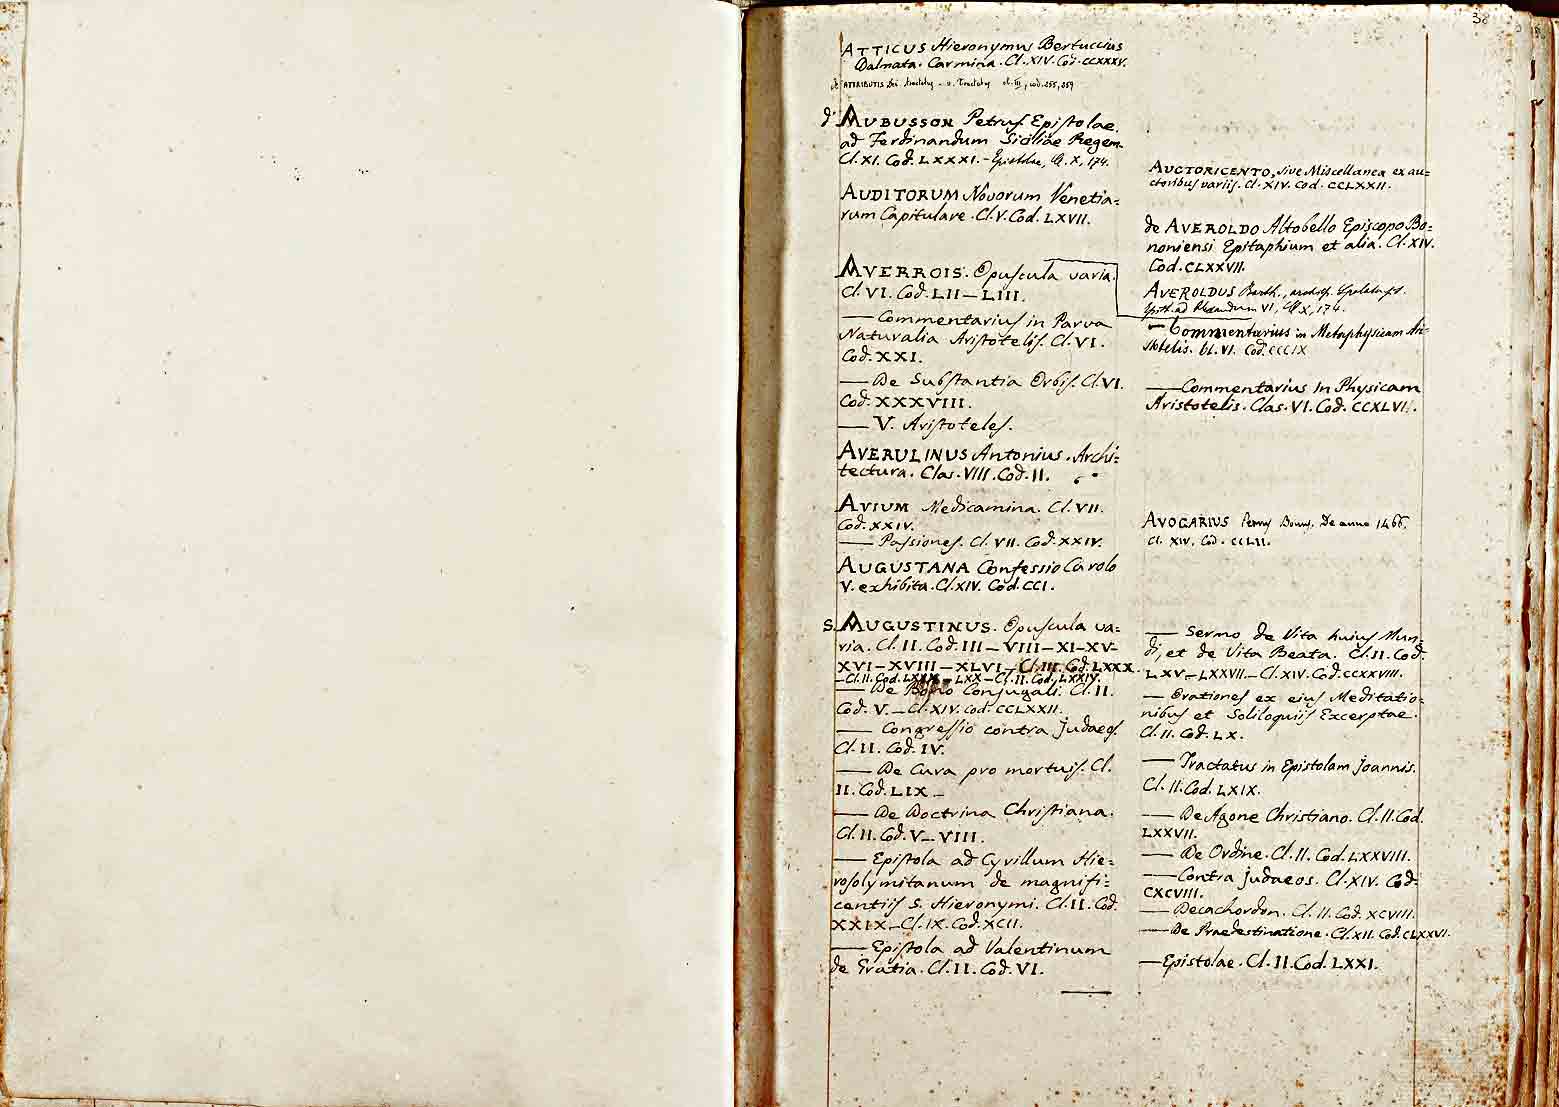 38
ATTICUS Hieronymus Bertuccius
Dalmata. Carmina. Cl. XIV. Cod. CCXXXV.
de ATTRIBUTIS Dei tractatus - v. Tractatus cl. III, cod. 255, 259
d' AUBUSSON Petrus Epistolae
ad Ferdinandum Siciliae Regem
Cl. XI. Cod. LXXXI. - Epistolae, Cl. X, 174.
AUDITORUM Novorum Venetia=
rum Capitulare. Cl. V. Cod. LXVII.
AVERROIS. Opuscula varia.
Cl. VI. Cod. LII — LIII.
— Commentarius in Parva
Naturalia Aristotelis. Cl. VI.
Cod. XXI.
— De Substantia Orbis. Cl. VI.
Cod. XXXVIII.
— V. Aristoteles.
AVERULINUS Antonius. Archi=
tectura. Clas. VIII. Cod. II.
AVIUM Medicamina. Cl. VII.
Cod. XXIV.
— Passiones. Cl. VII. Cod. XXIV.
AUGUSTANA Confessio Carolo
V. exhibita. Cl. XIV. Cod. CCI.
S. AUGUSTINUS. Opuscula va=
ria. Cl. II. Cod. III — VIII — XI — XV —
XVI — XVIII — XLVI — Cl. III. Cod. LXXX.
— Cl. II. Cod. LXIX — LXX — Cl. II. Cod. LXXIV.
— De Bono Conjugali. Cl. II.
Cod. V. — Cl. XIV. Cod. CCLXXII.
— Congressio contra Judaeos
Cl. II. Cod. IV.
— De Cura pro mortuis. Cl.
II. Cod. LIX —
— De Doctrina Christiana.
Cl. II. Cod. V — VIII.
— Epistola ad Cyrillum Hie=
rosolymitanum de magnifi=
centiis S. Hieronymi. Cl. II. Cod.
XXIX — Cl. IX. Cod. XCII.
— Epistola ad Valentinum
de Gratia. Cl. II. Cod. VI.
AUCTORICENTO, sive Miscellanea ex au=
ctoribus variis. Cl. XIV. Cod. CCLXXII.
de AVEROLDO Altobello Episcopo Bo=
noniensi Epitaphium et alia. Cl. XIV.
Cod. CLXXVII.
AVEROLDUS Barth., archiep. Spalat.
Epist. ad Alexandrum VI, Cl. X, 174.
— Commentarius in Metaphysicam Ari=
stotelis. Cl. VI. Cod. CCCIX
— Commentarius in Physicam
Aristotelis. Clas. VI. Cod. CCXLVII.
AVOGARIUS Petrus Bonus. De anno 1466.
Cl. XIV. Cod. CCLII.
— Sermo de Vita huius Mun=
di, et de Vita Beata. Cl. II. Cod.
LXV — LXXVII. — Cl. XIV. Cod. CCXXVIII.
— Orationes ex eius Meditatio=
nibus et Soliloquiis Excerptae.
Cl. II. Cod. LX.
— Tractatus in Epistolam Joannis.
Cl. II. Cod. LXIX.
— De Agone Christiano. Cl. II. Cod.
LXXVII.
— De Ordine. Cl. II. Cod. LXXVIII.
— Contra Judaeos. Cl. XIV. Cod.
CXCVIII.
— Decachordon. Cl. II. Cod. XCVIII.
— De Praedestinatione. Cl. XII. Cod. CLXXVI.
— Epistolae. Cl. II. Cod. LXXI.